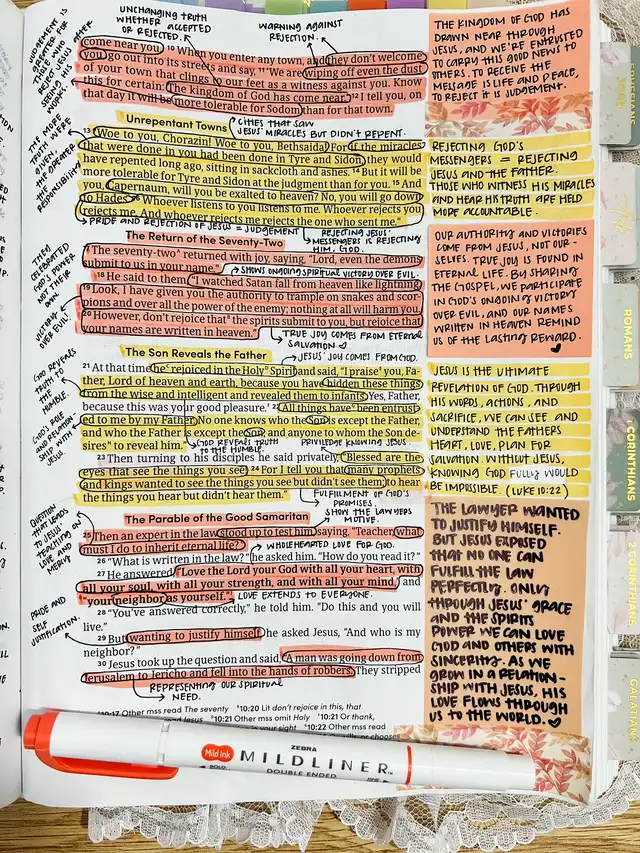 UNCHANGING TRUTH
WHETHER ACCEPTED
OR REJECTED.
WARNING AGAINST
REJECTION.
JUDGEMENT IS
GREATER FOR
THOSE WHO
REJECT JESUS AFTER
SEEING HIS
WORKS.
come near you.’ 10 When you enter any town, and they don’t welcome
you, go out into its streets and say, 11 ‘We are wiping off even the dust
of your town that clings to our feet as a witness against you. Know
this for certain: The kingdom of God has come near.’ 12 I tell you, on
that day it will be more tolerable for Sodom than for that town.
THE KINGDOM OF GOD HAS
DRAWN NEAR THROUGH
JESUS, AND WE'RE ENTRUSTED
TO CARRY THIS GOOD NEWS TO
OTHERS. TO RECEIVE THE
MESSAGE IS LIFE AND PEACE,
TO REJECT IT IS JUDGEMENT.
Unrepentant Towns
CITIES THAT SAW
JESUS' MIRACLES BUT DIDN'T REPENT.
THE MORE
TRUTH WE'RE
GIVEN,
THE GREATER
THE
RESPONSIBILITY
13 “Woe to you, Chorazin! Woe to you, Bethsaida! For if the miracles
that were done in you had been done in Tyre and Sidon, they would
have repented long ago, sitting in sackcloth and ashes. 14 But it will be
more tolerable for Tyre and Sidon at the judgment than for you. 15 And
you, Capernaum, will you be exalted to heaven? No, you will go down
to Hades. 16 Whoever listens to you listens to me. Whoever rejects you
rejects me. And whoever rejects me rejects the one who sent me.”
PRIDE AND REJECTION OF JESUS = JUDGEMENT
REJECTING JESUS'
MESSENGERS IS REJECTING
HIM, GOD.
REJECTING GOD'S
MESSENGERS = REJECTING
JESUS AND THE FATHER.
THOSE WHO WITNESS HIS MIRACLES
AND HEAR HIS TRUTH ARE HELD
MORE ACCOUNTABLE.
The Return of the Seventy-Two
THEY
CELEBRATED
GOD'S POWER
NOT THEIR
OWN
VICTORY
OVER EVIL.
17 The seventy-two returned with joy, saying, “Lord, even the demons
submit to us in your name.”
SHOWS ONGOING SPIRITUAL VICTORY OVER EVIL.
18 He said to them, “I watched Satan fall from heaven like lightning.
19 Look, I have given you the authority to trample on snakes and scor-
pions and over all the power of the enemy; nothing at all will harm you.
20 However, don’t rejoice that the spirits submit to you, but rejoice that
your names are written in heaven.”
TRUE JOY COMES FROM ETERNAL
SALVATION ♡
OUR AUTHORITY AND VICTORIES
COME FROM JESUS, NOT OUR-
SELVES. TRUE JOY IS FOUND IN
ETERNAL LIFE. BY SHARING
THE GOSPEL, WE PARTICIPATE
IN GOD'S ONGOING VICTORY
OVER EVIL, AND OUR NAMES
WRITTEN IN HEAVEN REMIND
US OF THE LASTING REWARD.
The Son Reveals the Father
JESUS' JOY COMES FROM GOD.
GOD REVEALS
TRUTH
TO THE
HUMBLE.
GOD'S ROLE
AND RELATION-
SHIP WITH
JESUS.
21 At that time he rejoiced in the Holy Spirit and said, “I praise you, Fa-
ther, Lord of heaven and earth, because you have hidden these things
from the wise and intelligent and revealed them to infants. Yes, Father,
because this was your good pleasure. 22 All things have been entrust-
ed to me by my Father. No one knows who the Son is except the Father,
and who the Father is except the Son, and anyone to whom the Son de-
sires to reveal him.”
GOD REVEALS TRUTH
TO THE HUMBLE.
PRIVILEDGE KNOWING JESUS.
23 Then turning to his disciples he said privately, “Blessed are the
eyes that see the things you see! 24 For I tell you that many prophets
and kings wanted to see the things you see but didn’t see them; to hear
the things you hear but didn’t hear them.”
FULFILLMENT OF GOD'S
PROMISES.
JESUS IS THE ULTIMATE
REVELATION OF GOD. THROUGH
HIS WORDS, ACTIONS, AND
SACRIFICE, WE CAN SEE AND
UNDERSTAND THE FATHERS
HEART, LOVE, PLAN FOR
SALVATION. WITHOUT JESUS,
KNOWING GOD FULLY WOULD
BE IMPOSSIBLE. (LUKE 10:22)
The Parable of the Good Samaritan
SHOW THE LAWYERS
MOTIVE.
QUESTION
THAT LEADS
TO JESUS
TEACHING ON
LOVE AND
MERCY.
25 Then an expert in the law stood up to test him, saying, “Teacher, what
must I do to inherit eternal life?”
WHOLEHEARTED LOVE FOR GOD.
26 “What is written in the law?” he asked him. “How do you read it?”
27 He answered, “Love the Lord your God with all your heart, with
all your soul, with all your strength, and with all your mind,” and
“your neighbor as yourself.”
LOVE EXTENDS TO EVERYONE.
PRIDE AND
SELF
JUSTIFICATION.
28 “You’ve answered correctly,” he told him. “Do this and you will
live.”
29 But wanting to justify himself, he asked Jesus, “And who is my
neighbor?”
30 Jesus took up the question and said, “A man was going down from
Jerusalem to Jericho and fell into the hands of robbers. They stripped
REPRESENTING OUR SPIRITUAL
NEED.
THE LAWYER WANTED
TO JUSTIFY HIMSELF.
BUT JESUS EXPOSED
THAT NO ONE CAN
FULFILL THE LAW
PERFECTLY. ONLY
THROUGH JESUS' GRACE
AND THE SPIRITS
POWER WE CAN LOVE
GOD AND OTHERS WITH
SINCERITY. AS WE
GROW IN A RELATION-
SHIP WITH JESUS, HIS
LOVE FLOWS THROUGH
US TO THE WORLD.
10:17 Other mss read The seventy 10:20 Lit don’t rejoice in this, that
10:21 Other mss omit Holy 10:21 Or thank,
10:22 Other mss read
Mild Ink
ZEBRA
MILDLINER™
DOUBLE ENDED
BOLD
FINE
ROMANS
1 CORINTHIANS
2 CORINTHIANS
GALATIANS